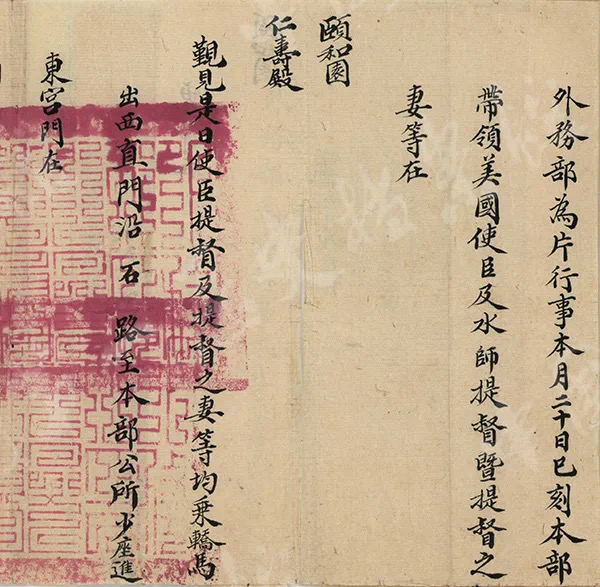 外務部為片行事本月二十日巳刻本部
帶領美國使臣及水師提督暨提督之
妻等在
頤和園
仁壽殿
覲見是日使臣提督及提督之妻等均乘轎馬
出西直門沿石路至本部公所少座進
東宮門在